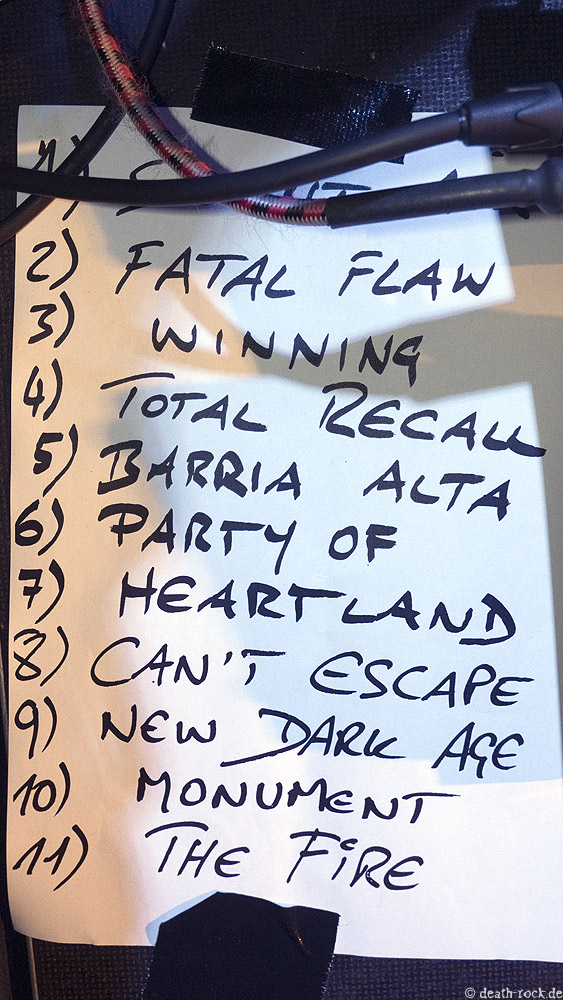 1)
2) FATAL FLAW
3) WINNING
4) TOTAL RECALL
5) BARRIA ALTA
6) PARTY OF
7) HEARTLAND
8) CAN'T ESCAPE
9) NEW DARK AGE
10) MONUMENT
11) THE FIRE
© death-rock.de